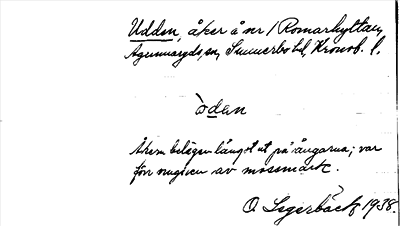 Udden, åker å nr 1 Romarhyltan,
Agunnaryds sn, Sunnerbo hd, Kronob. l.
òden
Åkern belägen långt ut på ängarna; var
förr omgiven av mossmark.
O. Segerbäck 1938.